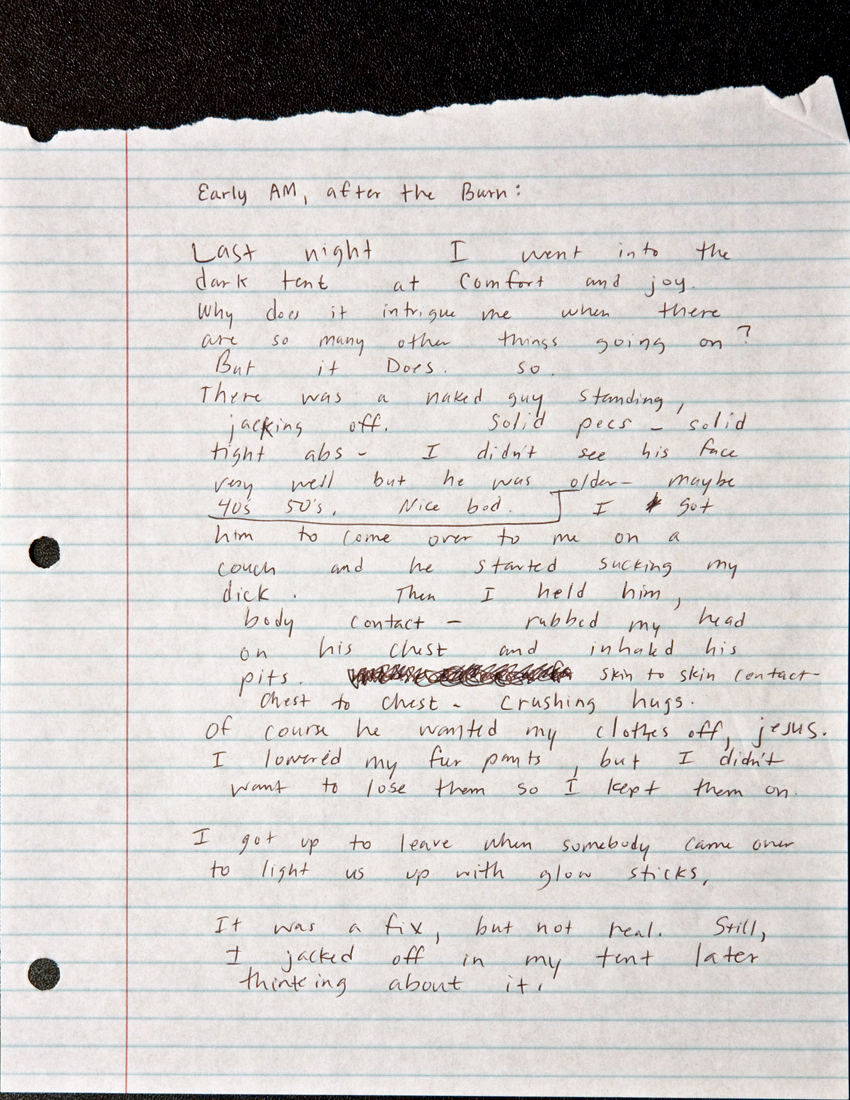 Early AM, after the Burn:
Last night I went into the
dark tent at Comfort and joy.
Why does it intrigue me when there
are so many other things going on?
But it Does. so.
There was a naked guy standing,
jacking off. Solid pecs - solid
tight abs - I didn't see his face
very well but he was older- maybe
40's 50's. Nice bod. I got
him to come over to me on a
couch and he started sucking my
dick. Then I held him,
body contact - rubbed my head
on his chest and inhaled his
pits. skin to skin contact-
chest to chest - crushing hugs.
Of course he wanted my clothes off, jesus.
I lowered my fur pants, but I didn't
want to lose them so I kept them on.
I got up to leave when somebody came over
to light us up with glow sticks,
It was a fix, but not real. Still,
I jacked off in my tent later
thinking about it.